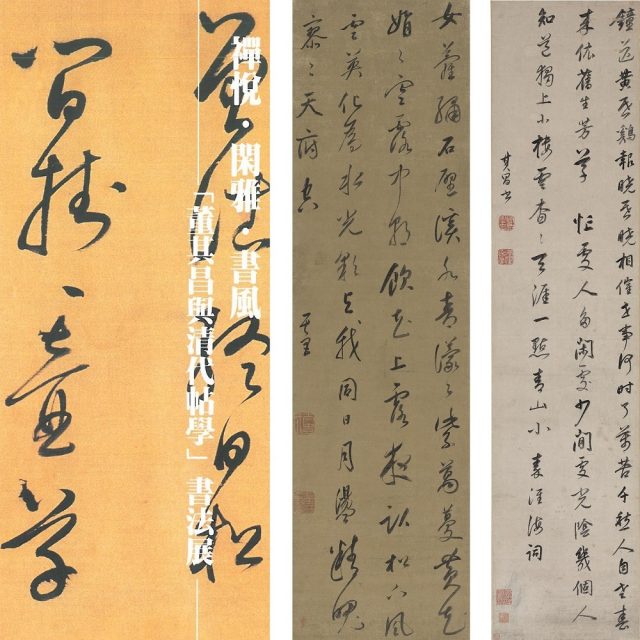 禪悅・閑雅・書風
「董其昌與清代帖學」書法展
女蘿繡石壁溪水青濛濛紫葛蔓黃花
娟娟空露中朝飲花上露夜臥松下風
雲英化為水光彩與我同日月盪精魄
寥寥天府空
鐘送黃昏鷄報曉昏曉相催世事何時了萬苦千秋人自老春
來依舊生芳草 忙處人多閑處少閒處光陰幾個人
知道獨上小樓雲杳杳天涯一點青山小 秦淮海詞
其昌書